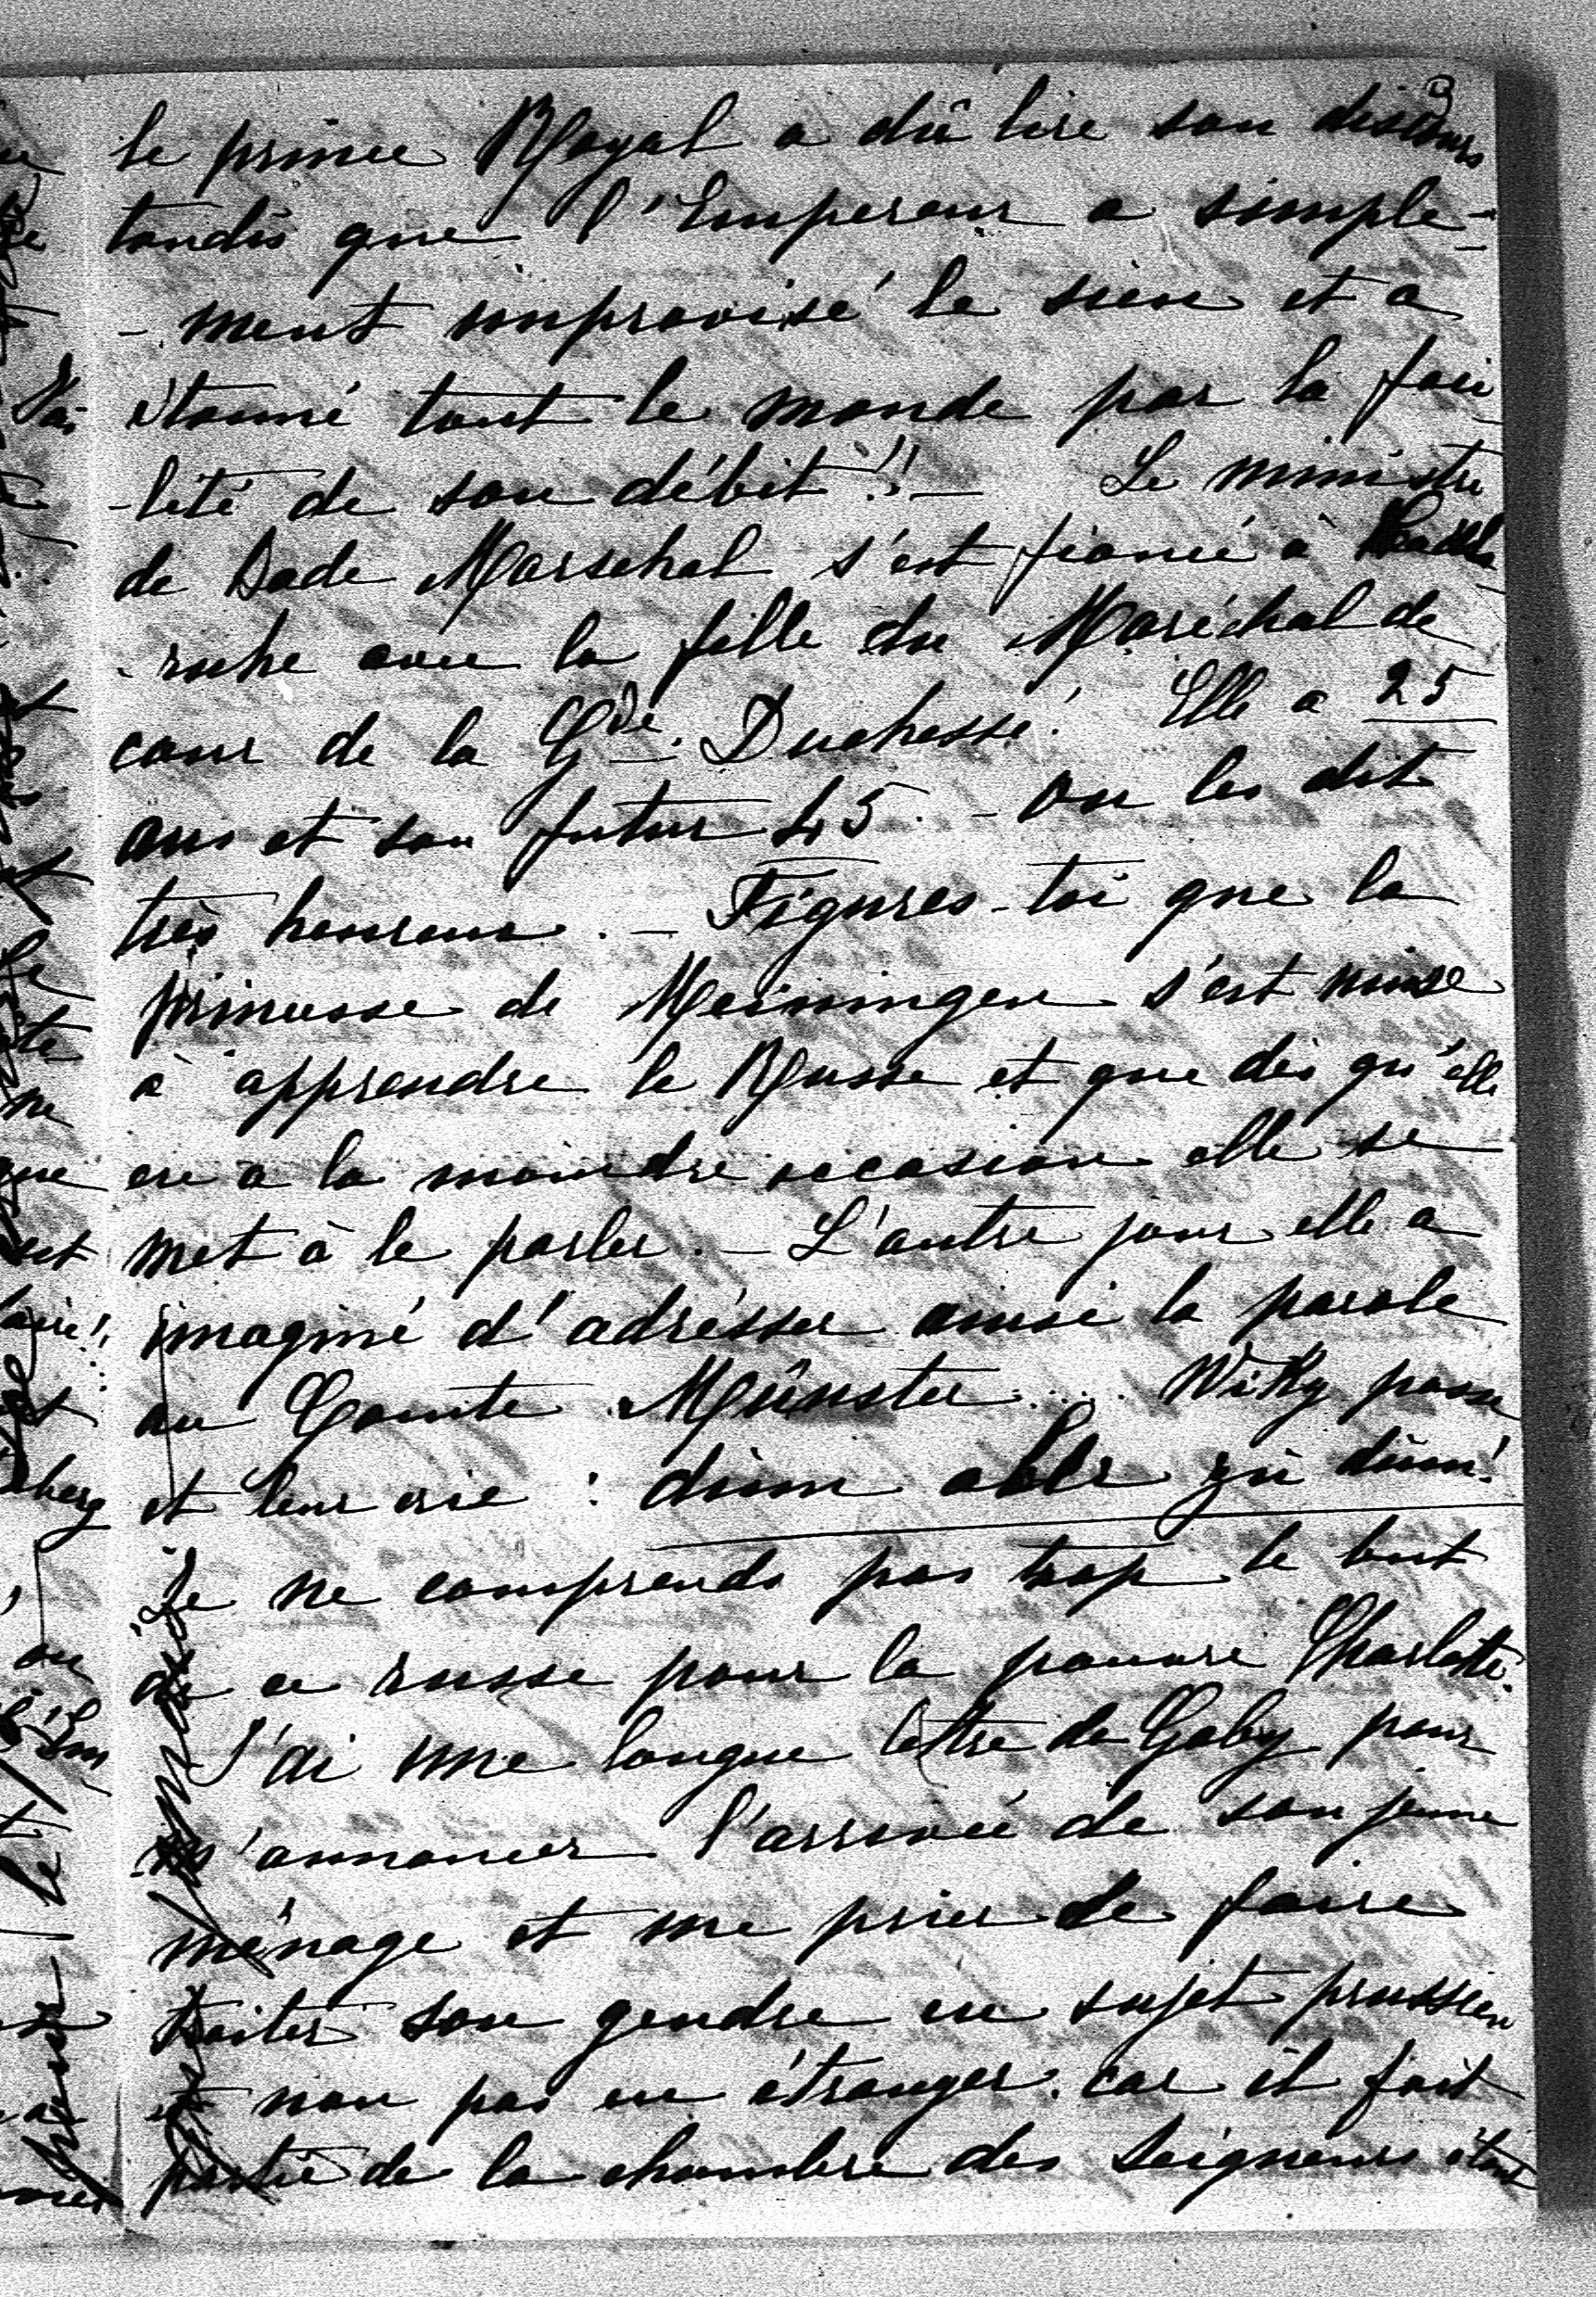 le prince Royal a dû lire son discours
tandis que l'Empereur a simple-
-ment improvisé le sien et a
étonné tout le monde par la faci
-lité de son débit!! — Le ministre
de Bade Marschal s'est fiancé à Carls
-ruhe avec la fille du Maréchal de
cour de la Gde. Duchesse! Elle a 25
ans et son futur 45. - On les dit
très heureux. — Figures-toi que la
princesse de Meiningen s'est mise
à apprendre le Russe et que dès qu'elle
en a la moindre occasion elle se
met à le parler. — L'autre jour elle a
imaginé d'adresser ainsi la parole
au Comte Münster.... Wiky passe
et leur crie: dumm aber zu dumm!
Je ne comprends pas trop le but
de ce russe pour la pauvre Charlotte.
J'ai une longue lettre de Gaby pour
m'annoncer l'arrivée de son jeune
ménage et me prier de faire
traiter son gendre en sujet prussien
et non pas en étranger. car il fait
partie de la chambre des Seigneurs étant